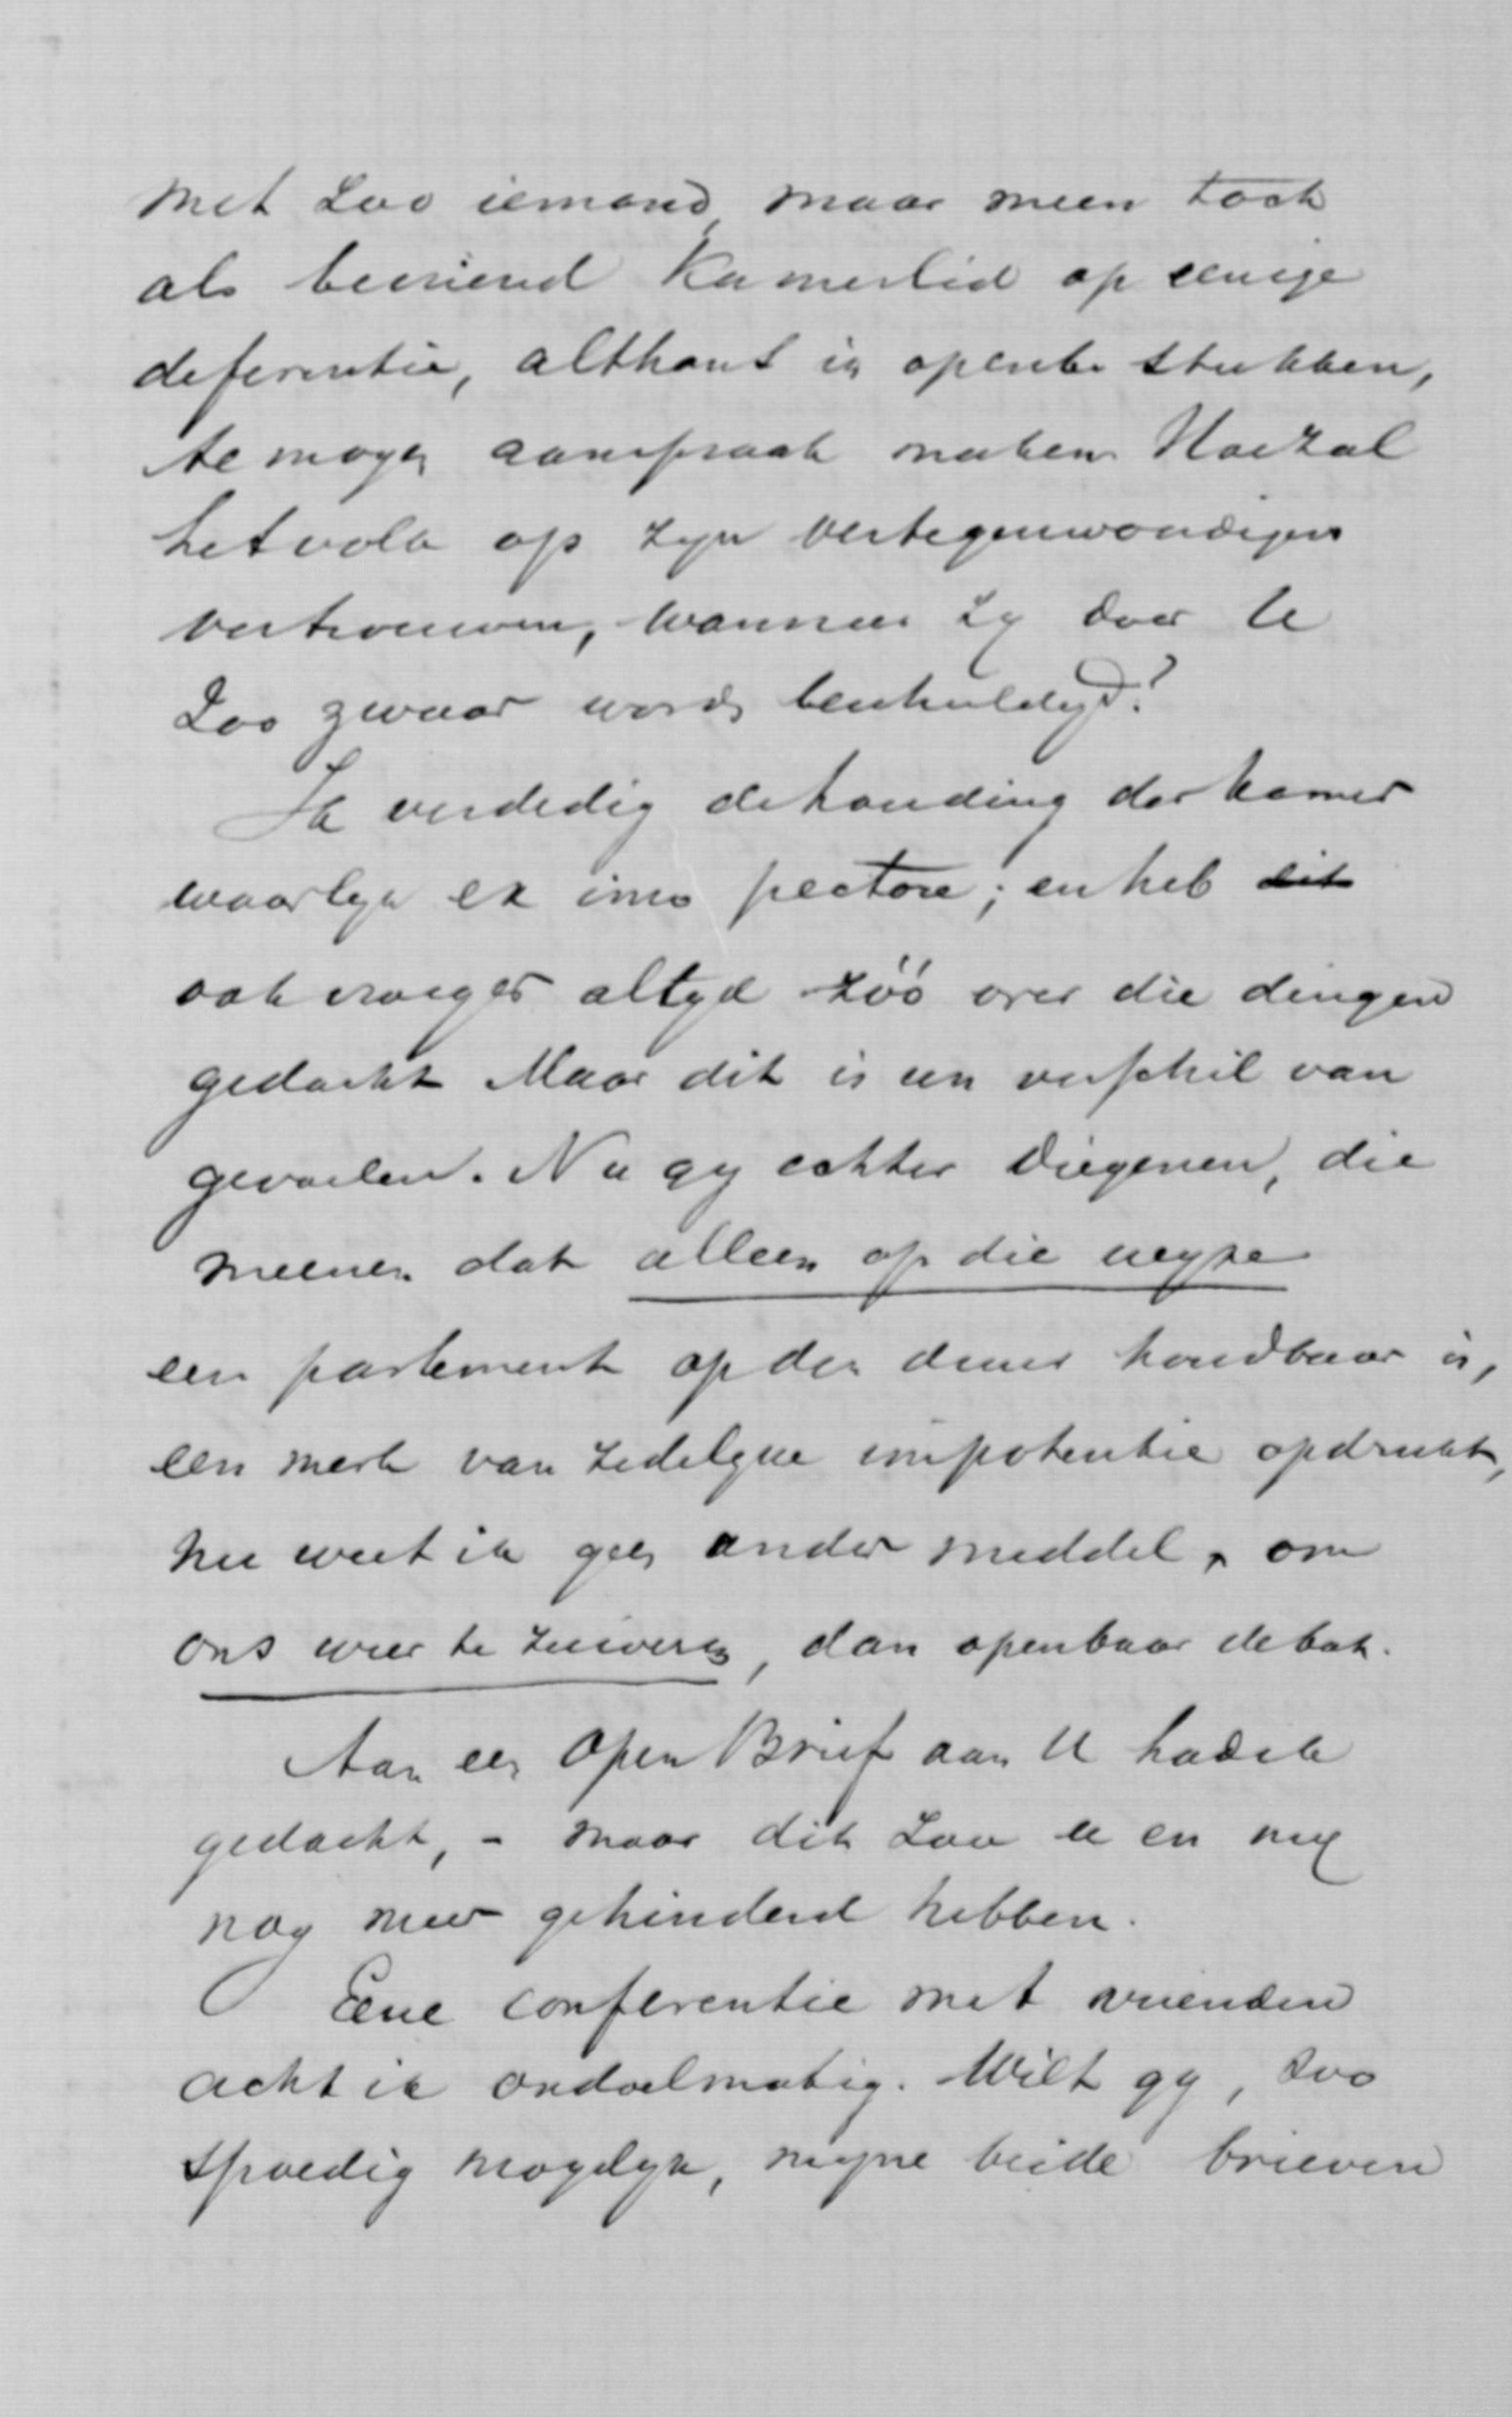 met zoo iemand, maar meen toch
als bevriend Kamerlid op eenige
deferentie, althans in openbe stukken,
te mogen aanspraak maken. Hoe zal
het volk op zyn vertegenwoordigers
vertrouwen, wanneer zy door U
zoo zwaar worden beschuldigd?
Ik verdedig de houding der kamer
waarlyk ex imo pectore; en heb dit
ook vroeger altyd zóó over die dingen
gedacht. Maar dit is een verschil van
gevoelen. Nu gy echter diegenen, die
meenen dat alleen op die wyze
een parlement op den duur houdbaar is,
een merk van zedelyke impotentie opdrukt,
nu weet ik geen ander middel, om
ons weer te zuiveren, dan openbaar debat.
Aan een Open Brief aan U had ik
gedacht, - maar dit zou U en my
nog meer gehinderd hebben.
Eene conferentie met vrienden
acht ik ondoelmatig. Wilt gy, zoo
spoedig mogelyk, myne beide brieven